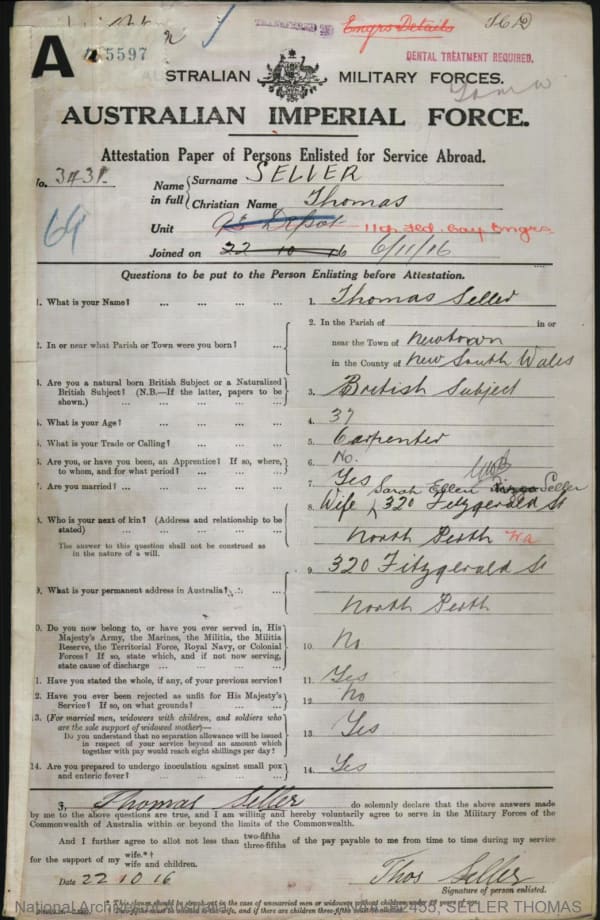 TRANSFERRED TO
Engrs Details
A
5597
DENTAL TREATMENT REQUIRED.
STRALIAN MILITARY FORCES.
AUSTRALIAN IMPERIAL FORCE.
Attestation Paper of Persons Enlisted for Service Abroad.
No. 3431. Name in full { Surname SELLER
Christian Name Thomas
69
Unit 95 Depot
Joined on 22 10 16 6/11/16
Questions to be put to the Person Enlisting before Attestation.
1. What is your Name? ... ... ... ... 1. Thomas Seller
2. In or near what Parish or Town were you born? ... 2. In the Parish of in or
near the Town of Newtown
in the County of New South Wales
3. Are you a natural born British Subject or a Naturalized
British Subject? (N.B.—If the latter, papers to be
shown.) ... ... ... ... ... 3. British Subject
4. What is your Age? ... ... ... ... 4. 37
5. What is your Trade or Calling? ... ... ... 5. Carpenter
6. Are you, or have you been, an Apprentice? If so, where,
to whom, and for what period? ... ... ... 6. No.
7. Are you married? ... ... ... ... 7. Yes
8. Who is your next of kin? (Address and relationship to be
stated) ... ... ... ... ... 8. Sarah Ellen Seller
Wife 320 Fitzgerald St
North Perth Wa
The answer to this question shall not be construed as
in the nature of a will.
9. What is your permanent address in Australia? 9. 320 Fitzgerald St
North Perth
10. Do you now belong to, or have you ever served in, His
Majesty's Army, the Marines, the Militia, the Militia
Reserve, the Territorial Force, Royal Navy, or Colonial
Forces? If so, state which, and if not now serving,
state cause of discharge ... ... ... ... 10. No
11. Have you stated the whole, if any, of your previous service? 11. Yes
12. Have you ever been rejected as unfit for His Majesty's
Service? If so, on what grounds? ... ... 12. No
13. (For married men, widowers with children, and soldiers who
are the sole support of widowed mother)—
Do you understand that no separation allowance will be issued
in respect of your service beyond an amount which
together with pay would reach eight shillings per day? 13. Yes
14. Are you prepared to undergo inoculation against small pox
and enteric fever? ... ... ... ... 14. Yes
I, Thomas Seller do solemnly declare that the above answers made
by me to the above questions are true, and I am willing and hereby voluntarily agree to serve in the Military Forces of the
Commonwealth of Australia within or beyond the limits of the Commonwealth.
And I further agree to allot not less than two-fifths three-fifths of the pay payable to me from time to time during my service
for the support of my wife.*† wife and children.
Date 22 10 16 Thos Seller
Signature of person enlisted.
National Archives SELLER THOMAS